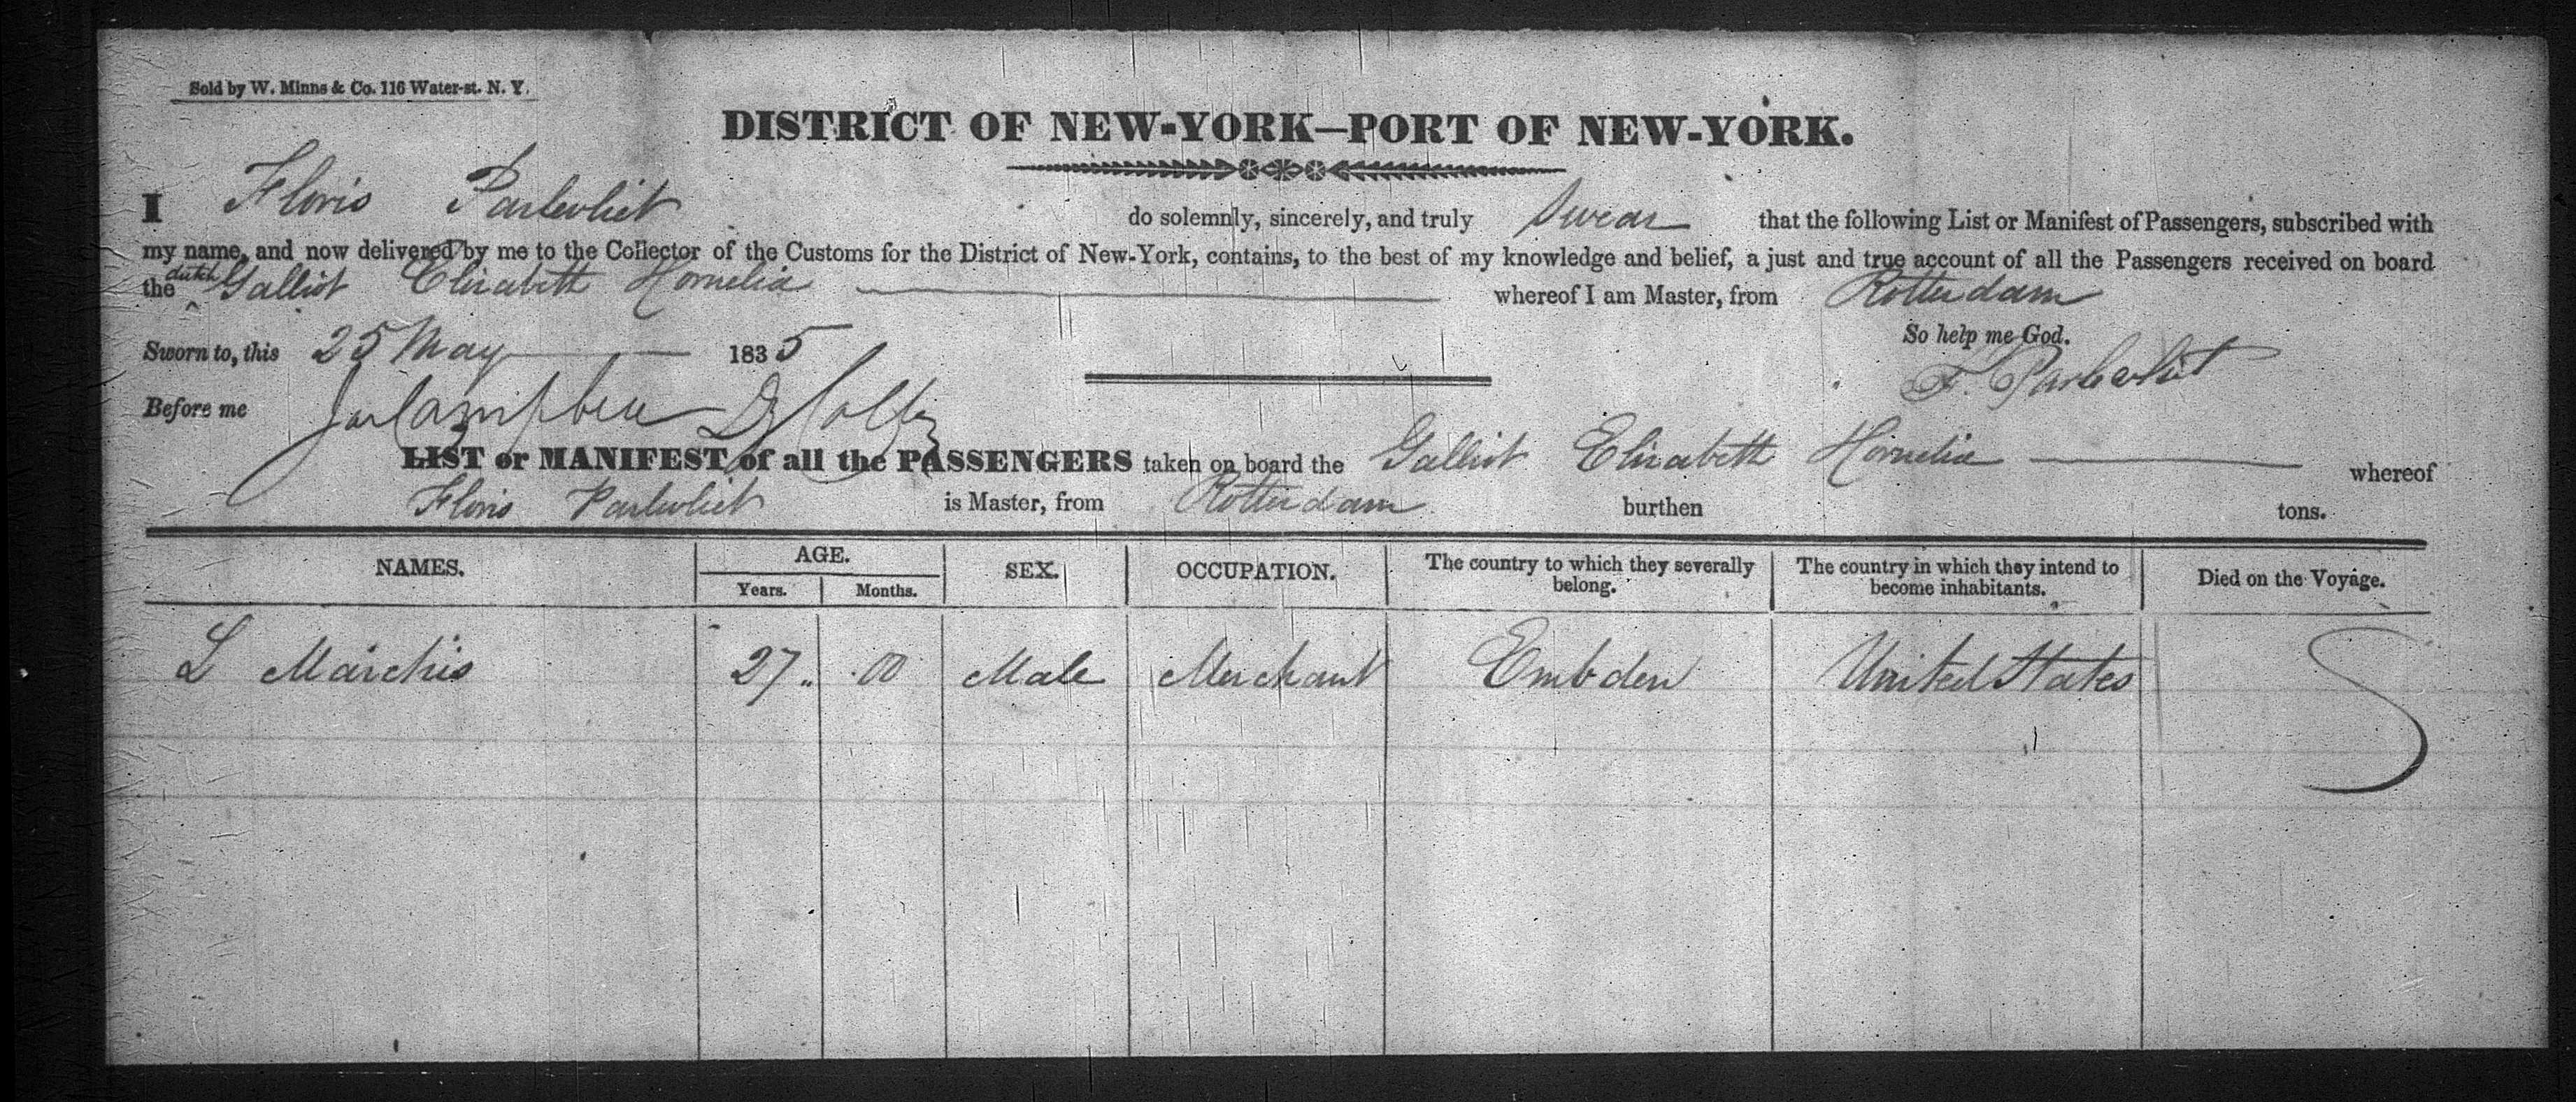 Sold by W. Minns & Co. 116 Water-st. N. Y.
DISTRICT OF NEW-YORK—PORT OF NEW-YORK.
I Floris Parlevliet do solemnly, sincerely, and truly swear that the following List or Manifest of Passengers, subscribed with
my name, and now delivered by me to the Collector of the Customs for the District of New-York, contains, to the best of my knowledge and belief, a just and true account of all the Passengers received on board
the dutch Galliot Elizabeth Hornelia whereof I am Master, from Rotterdam
So help me God.
Sworn to, this 25 May 1835
F. Parlevliet
Before me
LIST or MANIFEST of all the PASSENGERS taken on board the Galliot Elizabeth Hornelia whereof
Floris Parlevliet is Master, from Rotterdam burthen tons.
NAMES. AGE. Years. Months. SEX. OCCUPATION. The country to which they severally belong. The country in which they intend to become inhabitants. Died on the Voyage.
L Marchis 27 00 Male Merchant Embden United States